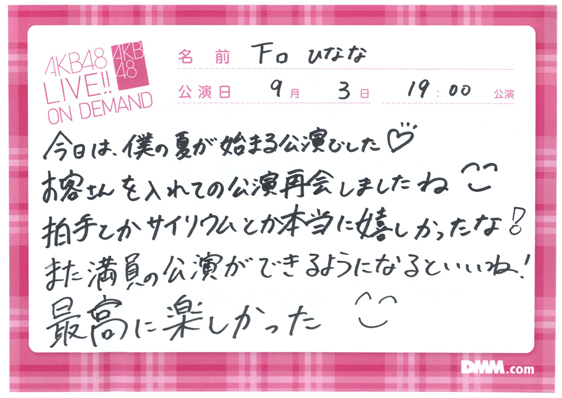 AKB48
LIVE!!
ON DEMAND
AKB
48
名前 下口 ひなな
公演日 9月 3日 19:00 公演
今日は、僕の夏が始まる公演でした♡
お客さんを入れての公演再会しましたね
拍手とかサイリウムとか本当に嬉しかったな!
また満員の公演ができるようになるといいね!
最高に楽しかった
DMM.com